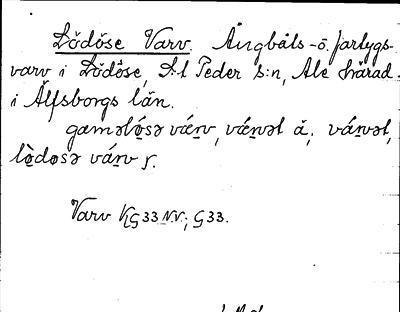 Lödöse Varv. Ångbåts- o. fartygs-
varv i Lödöse, S:t Peder s:n, Ale härad
i Älfsborgs län.
gaməlø̀sə várv, várvət ä; várvət,
lø̀dosə várv ɼ.
Varv KG 33 NV; G 33.